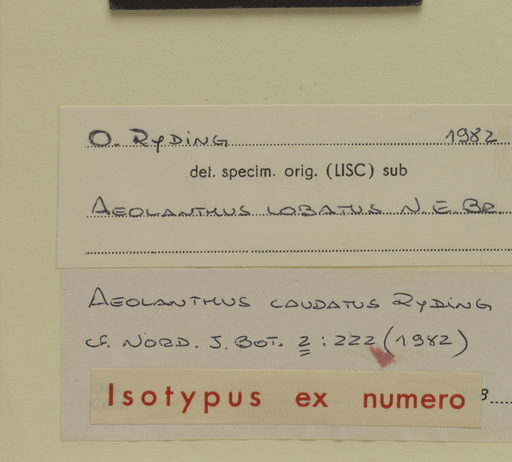 O. Ryding 1982
det. specim. orig. (LISC) sub
Aeolanthus lobatus N.E.Br.
Aeolanthus caudatus Ryding
cf. Nord. J. Bot. 2 : 222 (1982)
Isotypus ex numero